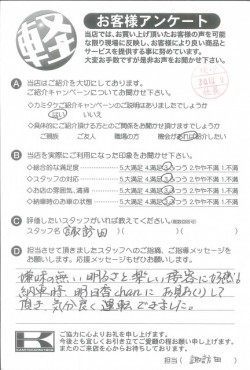 軽
お客様アンケート
当店では、お買い上げ頂いたお客様の声を可能
な限り現場に反映し、お客様により良い商品と
サービスを提供する事に努めています。
大変お手数ですが是非お声をお聞かせ下さい。
A 当店はご紹介を大切にしております。
ご紹介キャンペーンについてお聞かせ下さい。
◇カミタケご紹介キャンペーンのご説明はありましたでしょうか
はい いいえ
◇具体的にご紹介頂ける方とのご関係をお聞かせ頂けますでしょうか
ご親族 ご友人 職場の方 機会があれば紹介したい
B 当店を実際にご利用になった印象をお聞かせ下さい。
◇総合的な満足度 5.大満足 4.満足 3.ふつう 2.やや不満 1.不満
◇スタッフの対応 5.大満足 4.満足 3.ふつう 2.やや不満 1.不満
◇お店の雰囲気、清掃 5.大満足 4.満足 3.ふつう 2.やや不満 1.不満
◇納車時のお車の状態 5.大満足 4.満足 3.ふつう 2.やや不満 1.不満
C 評価したいスタッフがいれば教えてください。
スタッフ名 諏訪田
D 担当させて頂きましたスタッフへのご指摘、ご指導メッセージを
お願いします。応援メッセージもぜひお願いします。
嫌味の無い明るさと楽しい接客に好感!
納車時、明日香chanにお見おくりして
頂き、気分良く運転できました。
ご協力に心よりお礼を申し上げます。
今後とも宜しくお引き立てご愛顧の程お願い申し上げます。
またのご来店を心からお待ちしております。
担当( 諏訪田 )